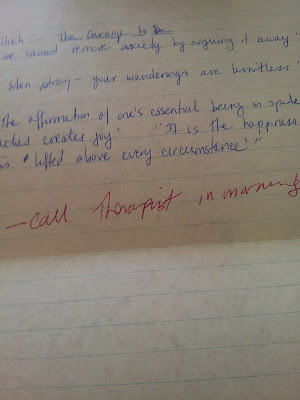 The Courage to Be
one cannot remove anxiety by arguing it away"
When astray - your wanderings are limitless"
the affirmation of one's essential being in spite
creates joy." "It is the happiness
is "lifted above every circumstance'"
- call therapist in morning